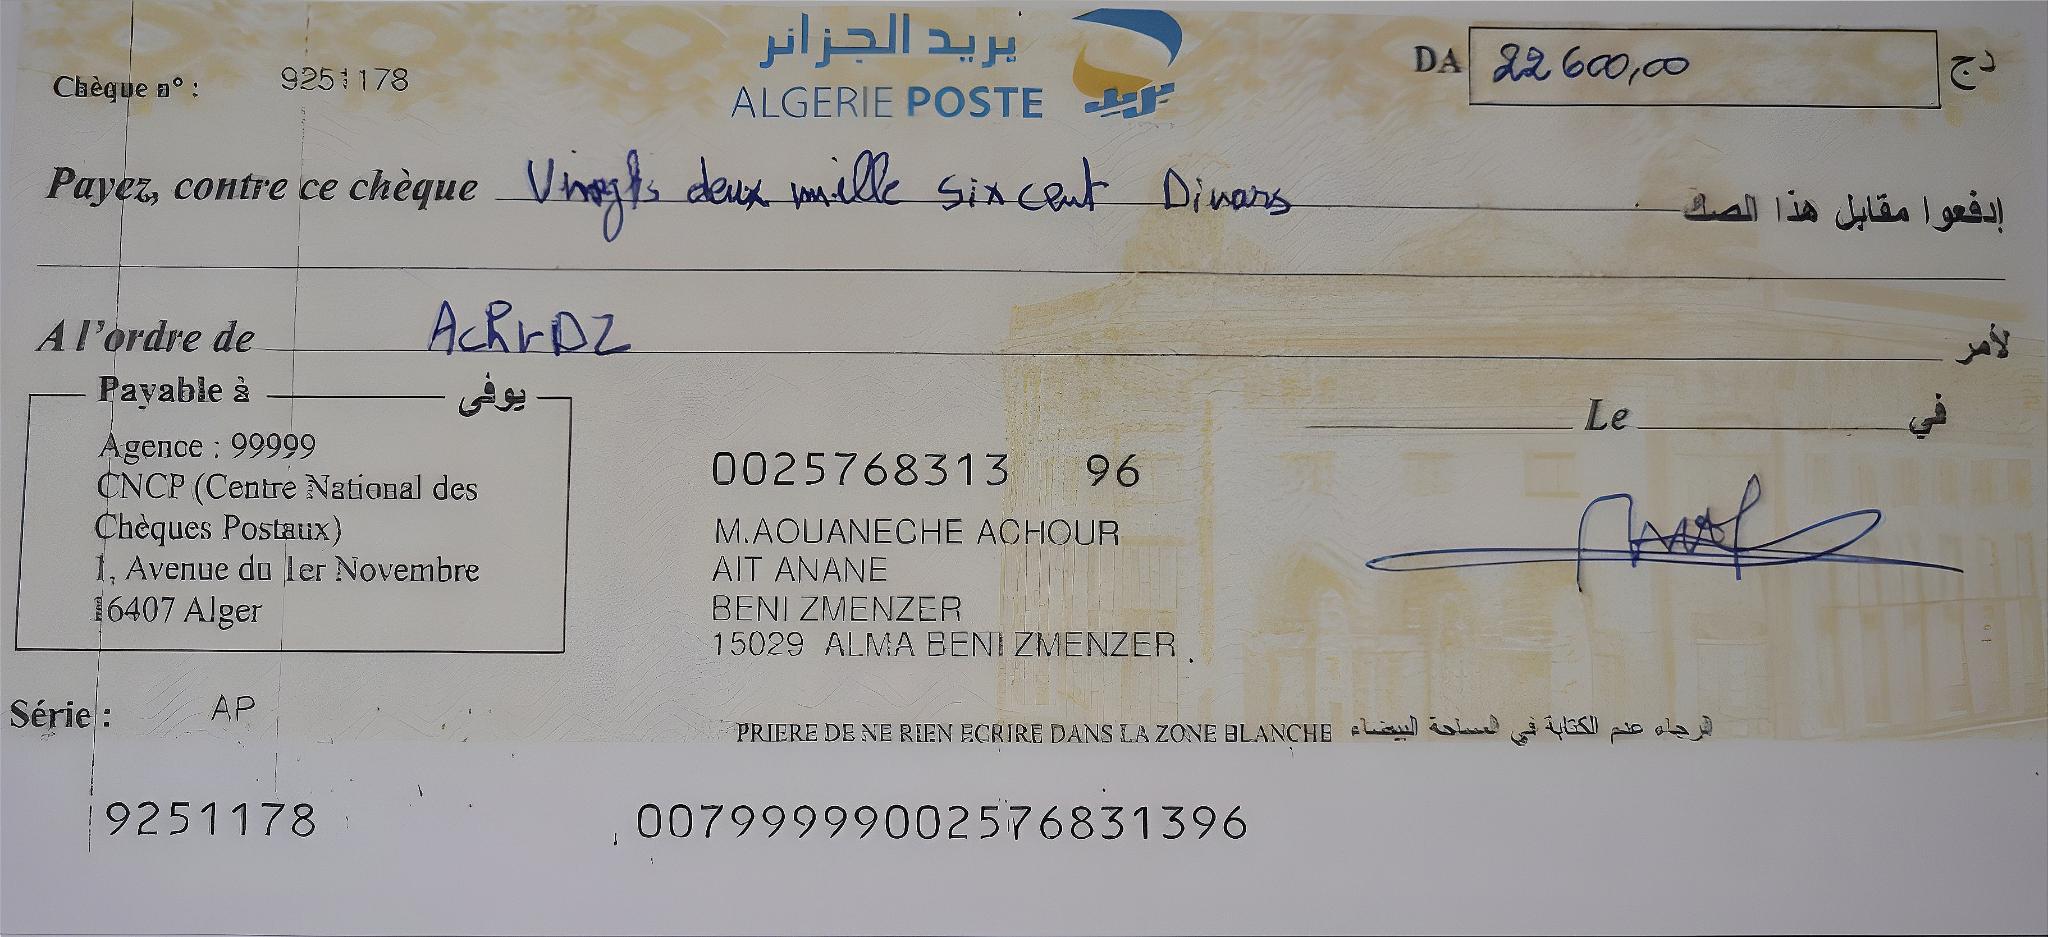 بريد الجزائر
ALGERIE POSTE
بريد
Chèque n° : 9251178
DA 22 600,00 دج
Payez, contre ce chèque Vingts deux mille six cent Dinars إدفعوا مقابل هذا الصك
A l'ordre de AchrDZ لأمر
Payable à يوفى
Agence : 99999
CNCP (Centre National des
Chèques Postaux)
1, Avenue du 1er Novembre
16407 Alger
0025768313 96
M.AOUANECHE ACHOUR
AIT ANANE
BENI ZMENZER
15029 ALMA BENI ZMENZER
Le في
Série : AP
PRIERE DE NE RIEN ECRIRE DANS LA ZONE BLANCHE الرجاء عدم الكتابة في المساحة البيضاء
9251178 00799999002576831396